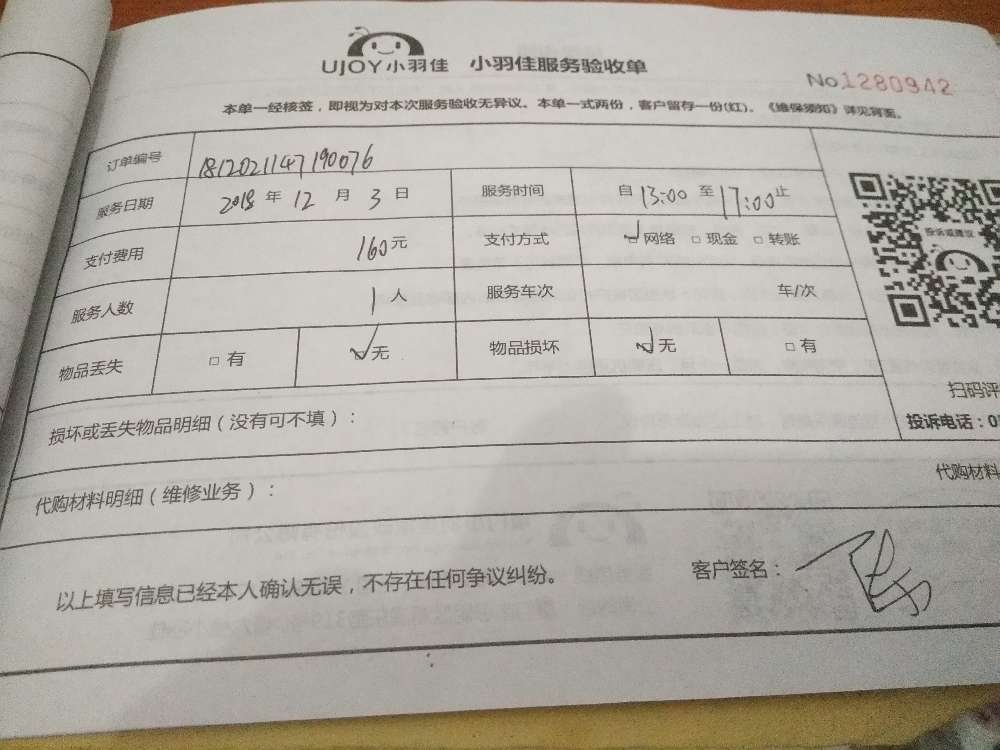 UJOY小羽佳 小羽佳服务验收单
No1280942
本单一经核签，即视为对本次服务验收无异议。本单一式两份，客户留存一份(红)。《维保须知》详见背面。
订单编号 1812021147190076
服务日期 2018 年 12 月 3 日 服务时间 自 13:00 至 17:00 止
支付费用 160元 支付方式 ☑网络 □现金 □转账
服务人数 1 人 服务车次 车/次
物品丢失 □有 ☑无 物品损坏 ☑无 □有
投诉或建议
扫码评
投诉电话：0
损坏或丢失物品明细（没有可不填）：
代购材料明细（维修业务）： 代购材料
以上填写信息已经本人确认无误，不存在任何争议纠纷。 客户签名：